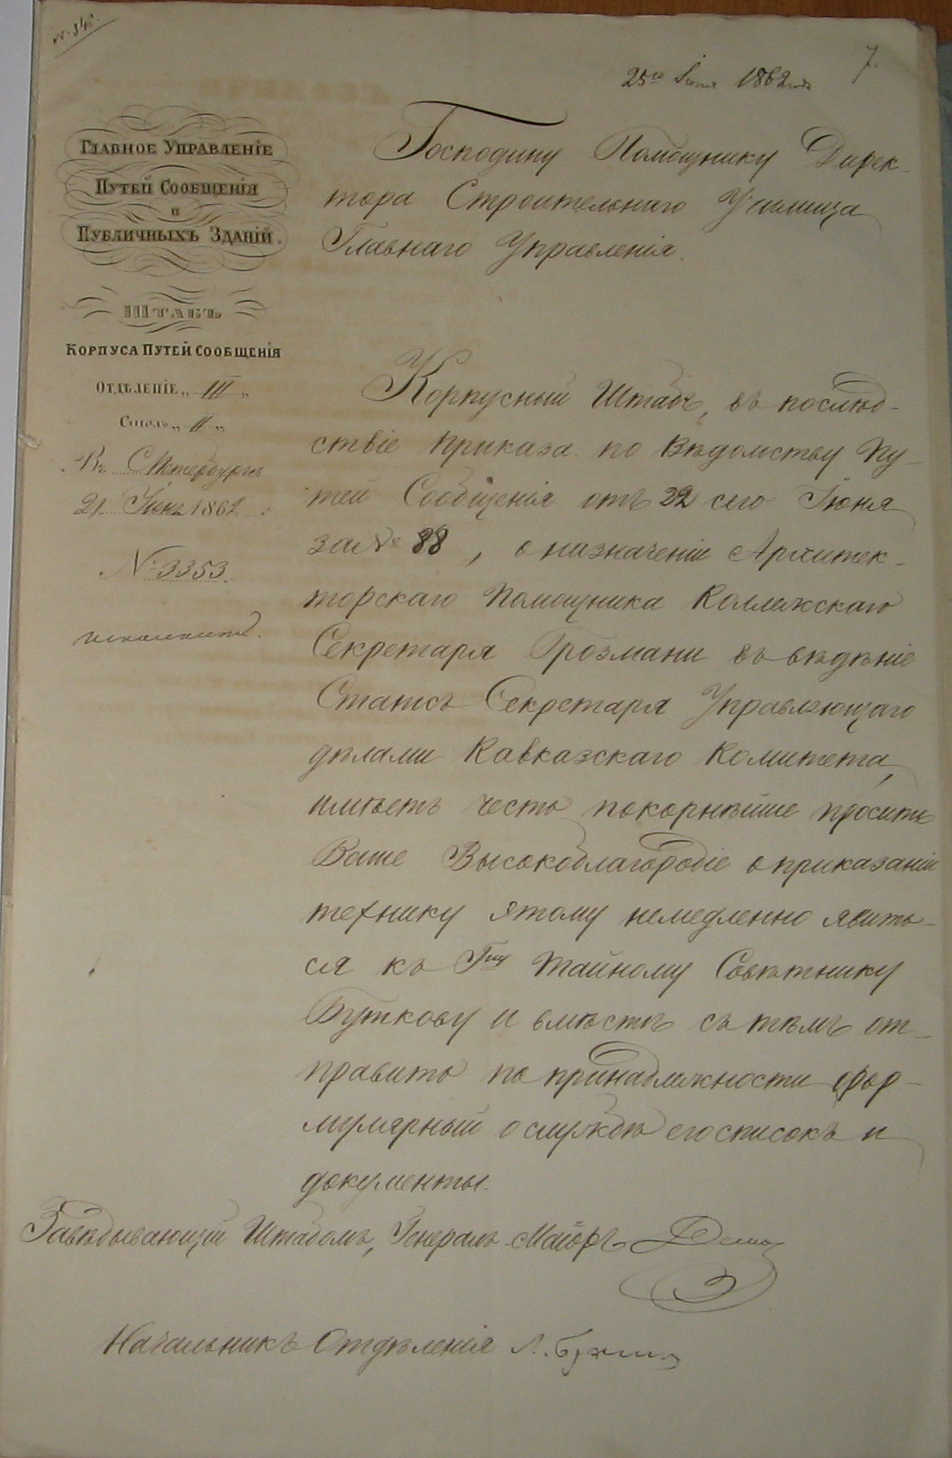 25го Іюня 1862 года
7.
ГЛАВНОЕ УПРАВЛЕНІЕ
ПУТЕЙ СООБЩЕНІЯ
И
ПУБЛИЧНЫХЪ ЗДАНІЙ.
ШТАБЪ
КОРПУСА ПУТЕЙ СООБЩЕНІЯ
ОТДѢЛЕНІЕ „III„
Столъ „II„
Въ С.Петербургѣ
Іюня 1862
№ 3353.
Господину Помощнику Дирек-
тора Строительнаго Училища
Главнаго Управленія.
Корпусный Штабъ, въ послѣд-
ствіе приказа по Вѣдомству Пу-
тей Сообщенія отъ 22 сего Іюня
за № 88, о назначеніи Архитек-
торскаго Помощника Коллежскаго
Секретаря Грозмани въ вѣдѣніе
Статсъ Секретаря Управляющаго
дѣлами Кавказскаго Комитета,
имѣетъ честь покорнѣйше просить
Ваше Высокоблагородіе о приказаніи
технику этому немедленно явить-
ся къ Гну Тайному Совѣтнику
Буткову и вмѣстѣ съ тѣмъ от-
править по принадлежности фор-
мулярный о службѣ его списокъ и
документы.
Завѣдывающій Штабомъ, Генералъ-Маіоръ
Начальникъ Отдѣленія